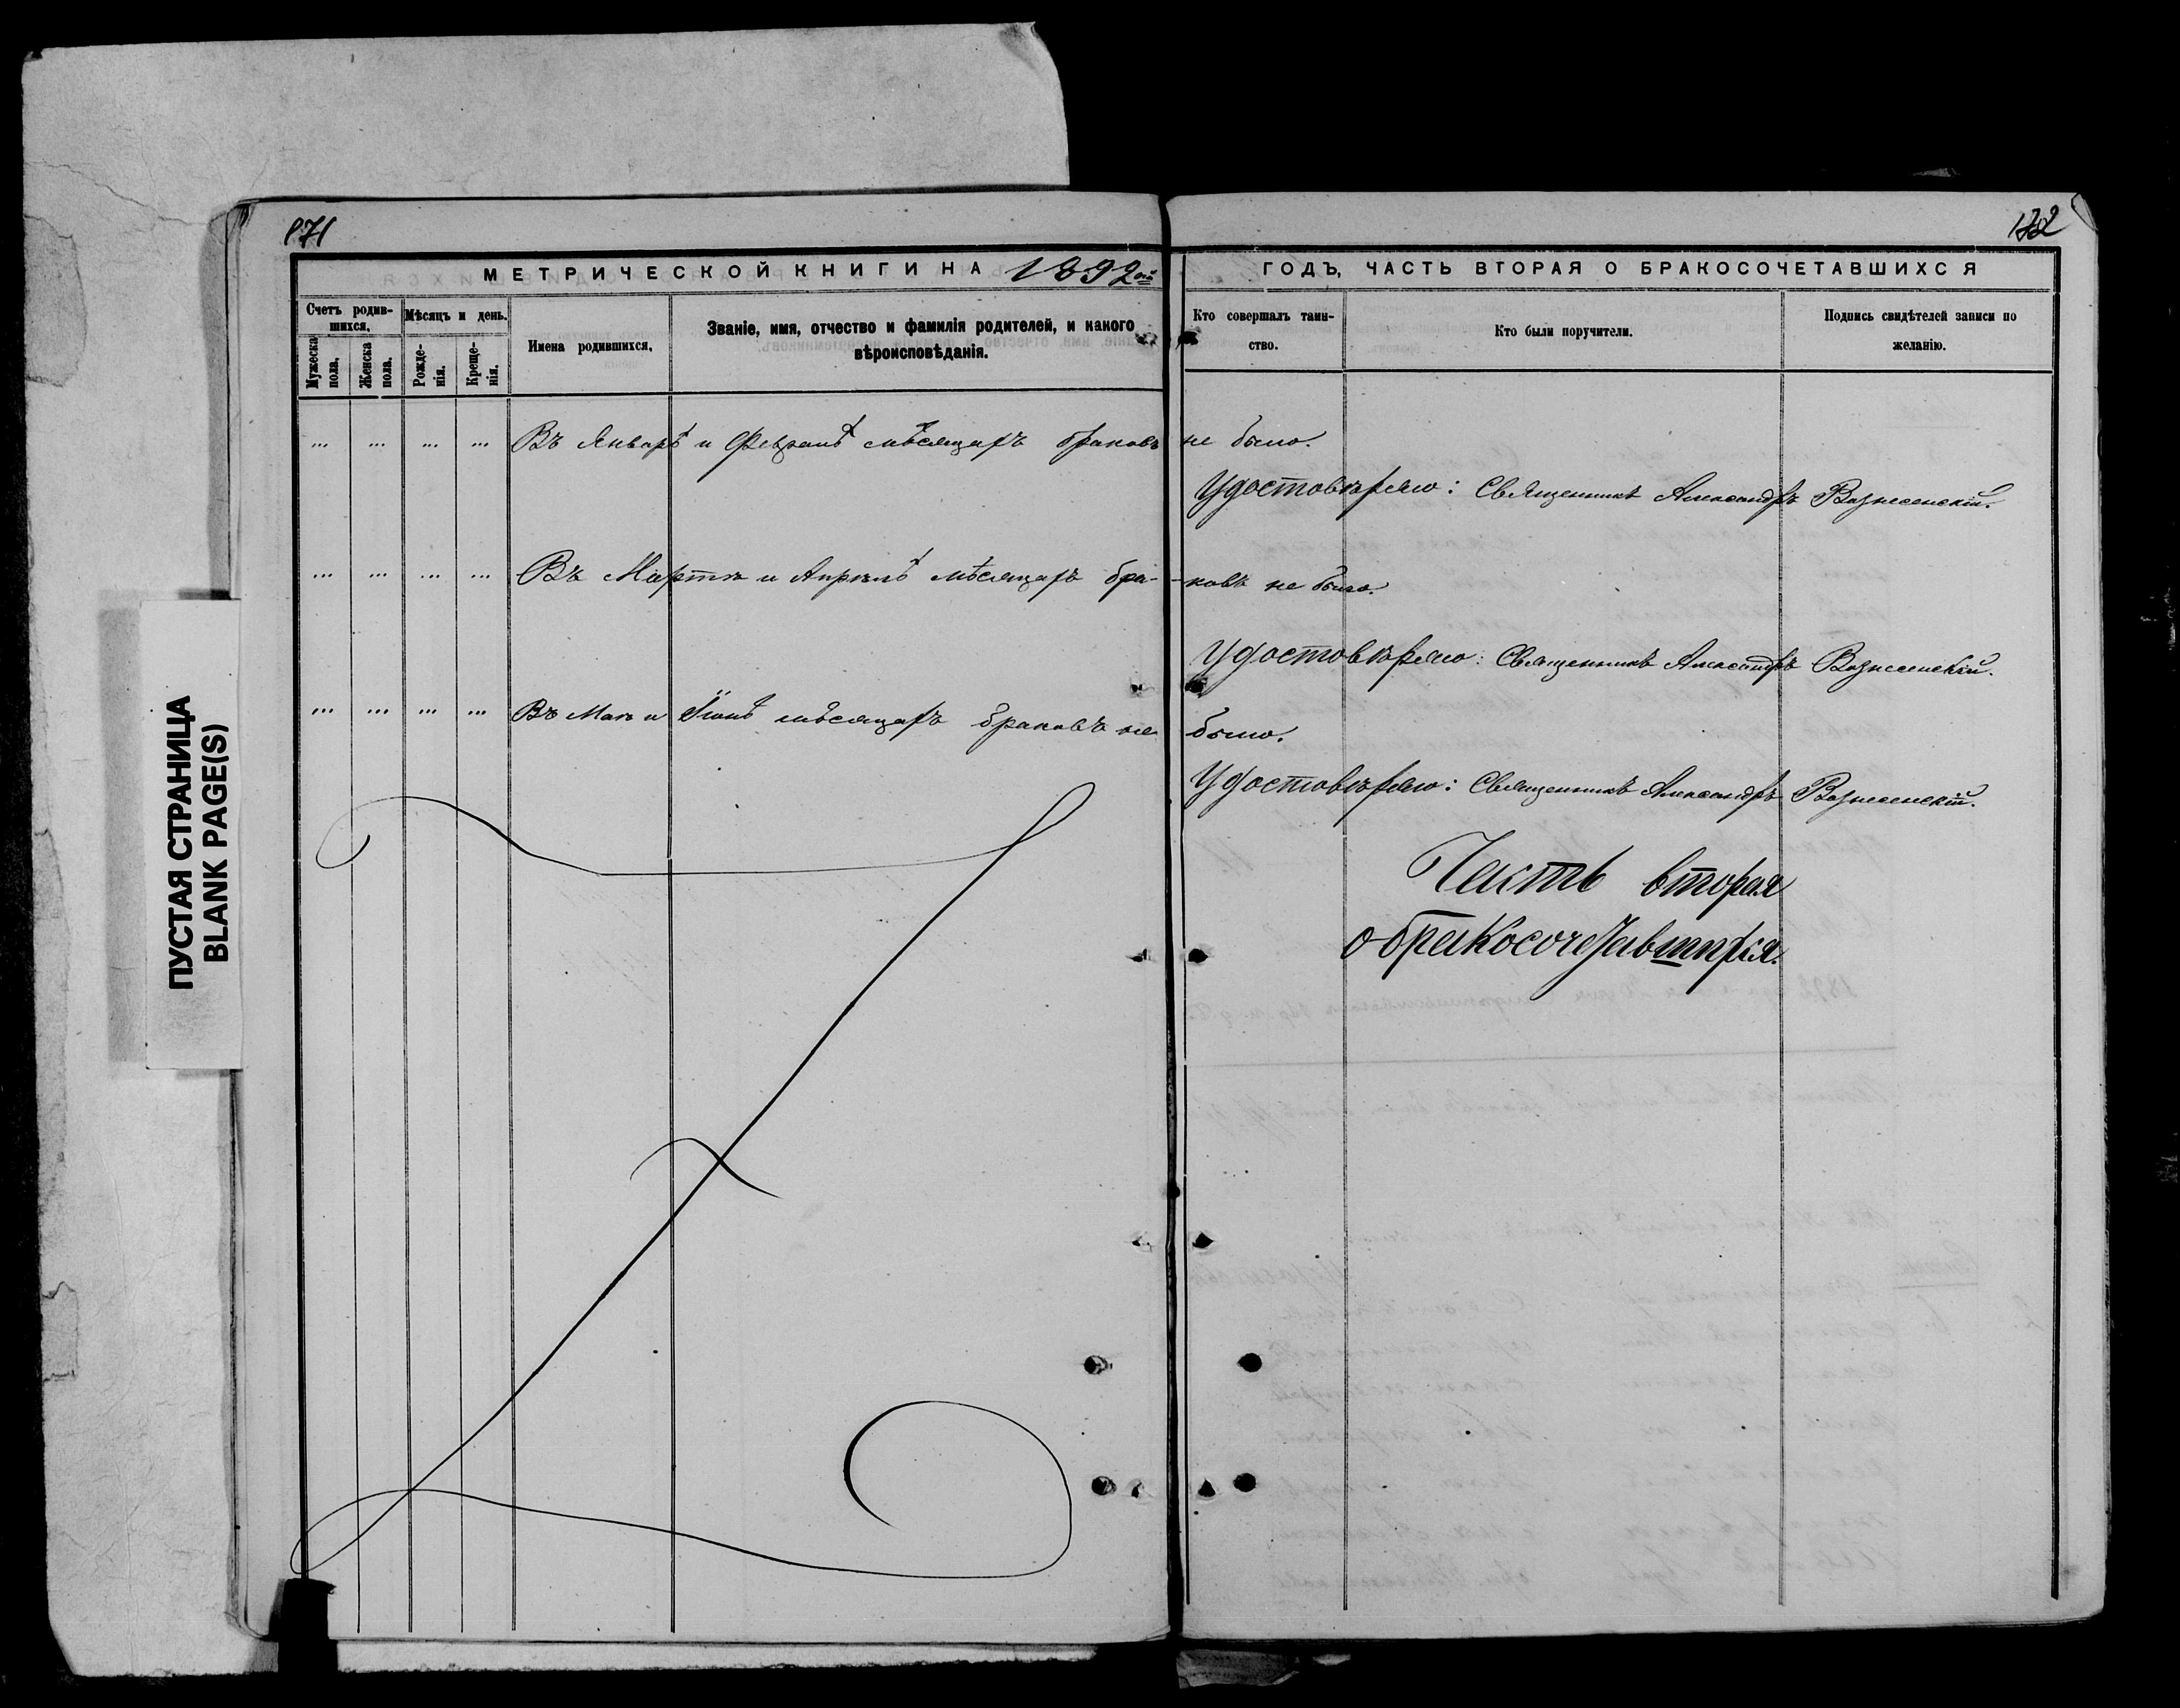 871
172
МЕТРИЧЕСКОЙ КНИГИ НА 1892ой
ГОДЪ, ЧАСТЬ ВТОРАЯ О БРАКОСОЧЕТАВШИХСЯ
Счетъ родив-
шихся.
Мѣсяцъ и день.
Мужеска
пола.
Женска
пола.
Рожде-
нія.
Креще-
нія.
Имена родившихся.
Званіе, имя, отчество и фамилія родителей, и какого
вѣроисповѣданія.
Кто совершалъ таин-
ство.
Кто были поручители.
Подпись свидѣтелей записи по
желанію.
... ... ... ... Въ Январѣ и Февралѣ мѣсяцахъ браковъ не было.
Удостовѣряю: Священникъ Александръ Вознесенскій.
... ... ... ... Въ Мартѣ и Апрѣлѣ мѣсяцахъ бра- -ковъ не было.
Удостовѣряю: Священникъ Александръ Вознесенскій.
... ... ... ... Въ Маѣ и Іюнѣ мѣсяцахъ браковъ не было.
Удостовѣряю: Священникъ Александръ Вознесенскій.
Часть вторая
о бракосочетавшихся.
ПУСТАЯ СТРАНИЦА
BLANK PAGE(S)